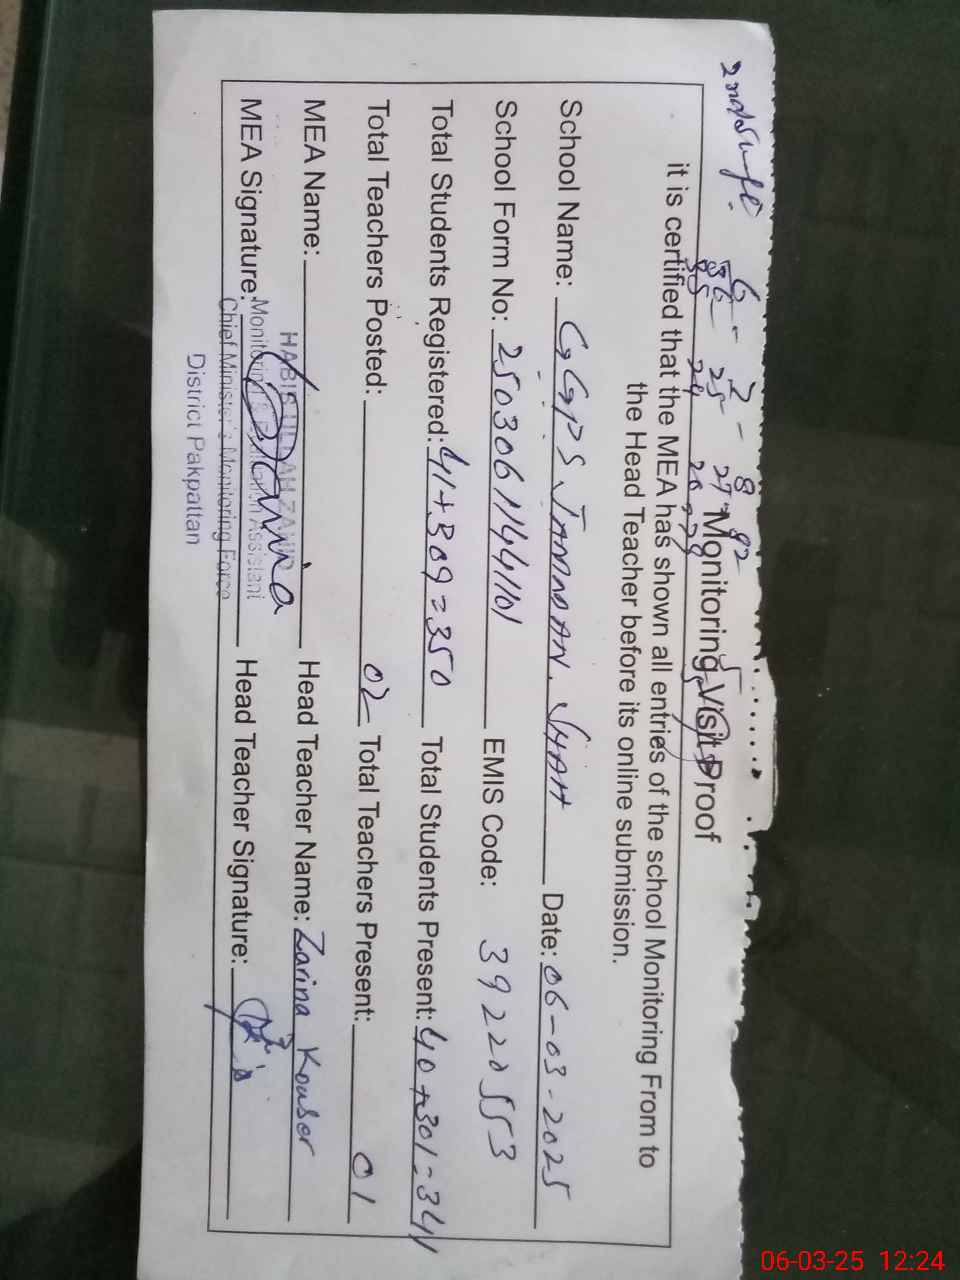 6 - 7 - 8
36 25 27 82
35 24 26 79
Monitoring Visit Proof
it is certified that the MEA has shown all entries of the school Monitoring From to
the Head Teacher before its online submission.
School Name: GGPS Jamman Shah Date: 06-03-2025
School Form No: 2503061144101 EMIS Code: 39220553
Total Students Registered: 41+309=350 Total Students Present: 40+301=341
Total Teachers Posted: 02 Total Teachers Present: 01
MEA Name: Head Teacher Name: Zarina Kousar
MEA Signature: Head Teacher Signature:
HABIB ULLAH
Monitoring & Evaluation Assistant
Chief Minister's Monitoring Force
District Pakpattan
06-03-25 12:24